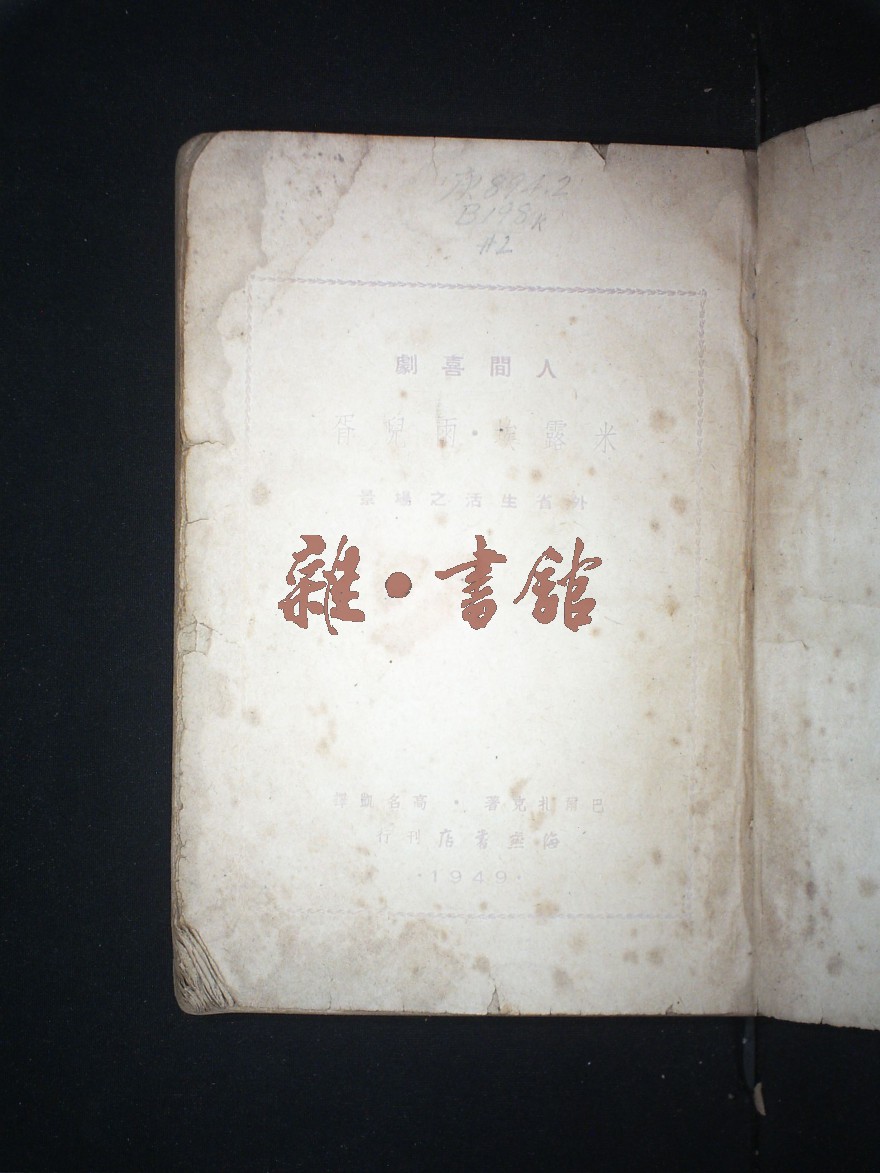 B198k
#2
人間喜劇
米露埃·雨兒胥
外省生活之場景
雜·書館
巴爾扎克著·高名凱譯
海燕書店刊行
·1949·